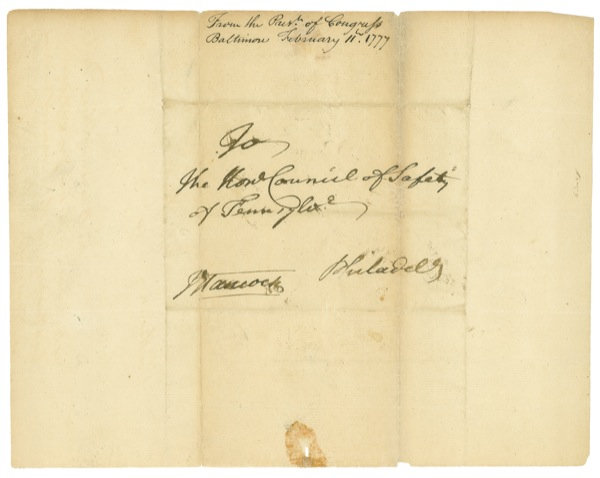 From the Presdt. of Congress
Baltimore February 11th. 1777
To
The Honl Council of Safety
of Pennsylva.
J Hancock
Philadela